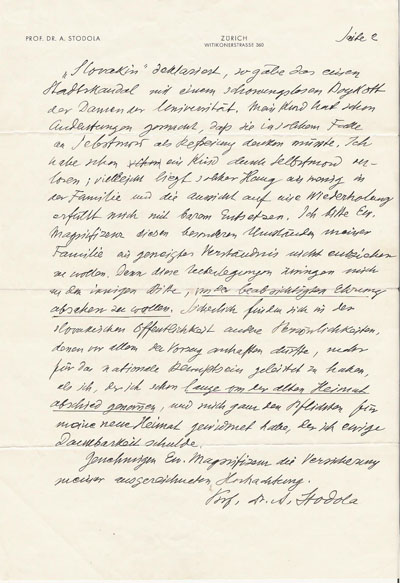 PROF. DR. A. STODOLA
ZÜRICH
WITIKONERSTRASSE 360
Seite 2
„Slovakin" deklassiert, so gäbe das einen
Stadtskandal mit einem schonungslosen Boykott
der Damen der Universität. Mein Kind hat schon
Andeutungen gemacht, dass sie in solchem Falle
an Selbstmord als Befreiung denken müsste. Ich
habe schon ein Kind durch Selbstmord ver-
loren; vielleicht liegt solcher Hang ein wenig in
der Familie und die Aussicht auf eine Wiederholung
erfüllt mich mit barem Entsetzen. Ich bitte Eu.
Magnifizenz diesen besonderen Umständen meiner
Familie Ihr geneigtes Verständnis nicht entziehen
zu wollen. Denn diese Ueberlegungen zwingen mich
zu der innigen Bitte, von der beabsichtigten Ehrung
absehen zu wollen. Sicherlich finden sich in der
slovakischen Öffentlichkeit andere Persönlichkeiten,
denen vor allem der Vorzug anhaften dürfte, mehr
für das nationale Bewusstsein geleistet zu haben,
als ich, der ich schon lange von der alten Heimat
Abschied genommen, und mich ganz den Pflichten für
meine neue Heimat gewidmet habe, der ich ewige
Dankbarkeit schulde.
Genehmigen Eu. Magnifizenz die Versicherung
meiner ausgezeichneten Hochachtung.
Prof. Dr. A. Stodola